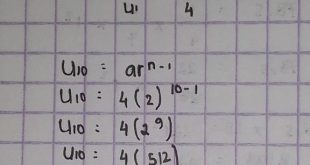 U1 4
U10 = ar^n-1
U10 = 4(2)^10-1
U10 = 4(2^9)
U10 = 4(512)